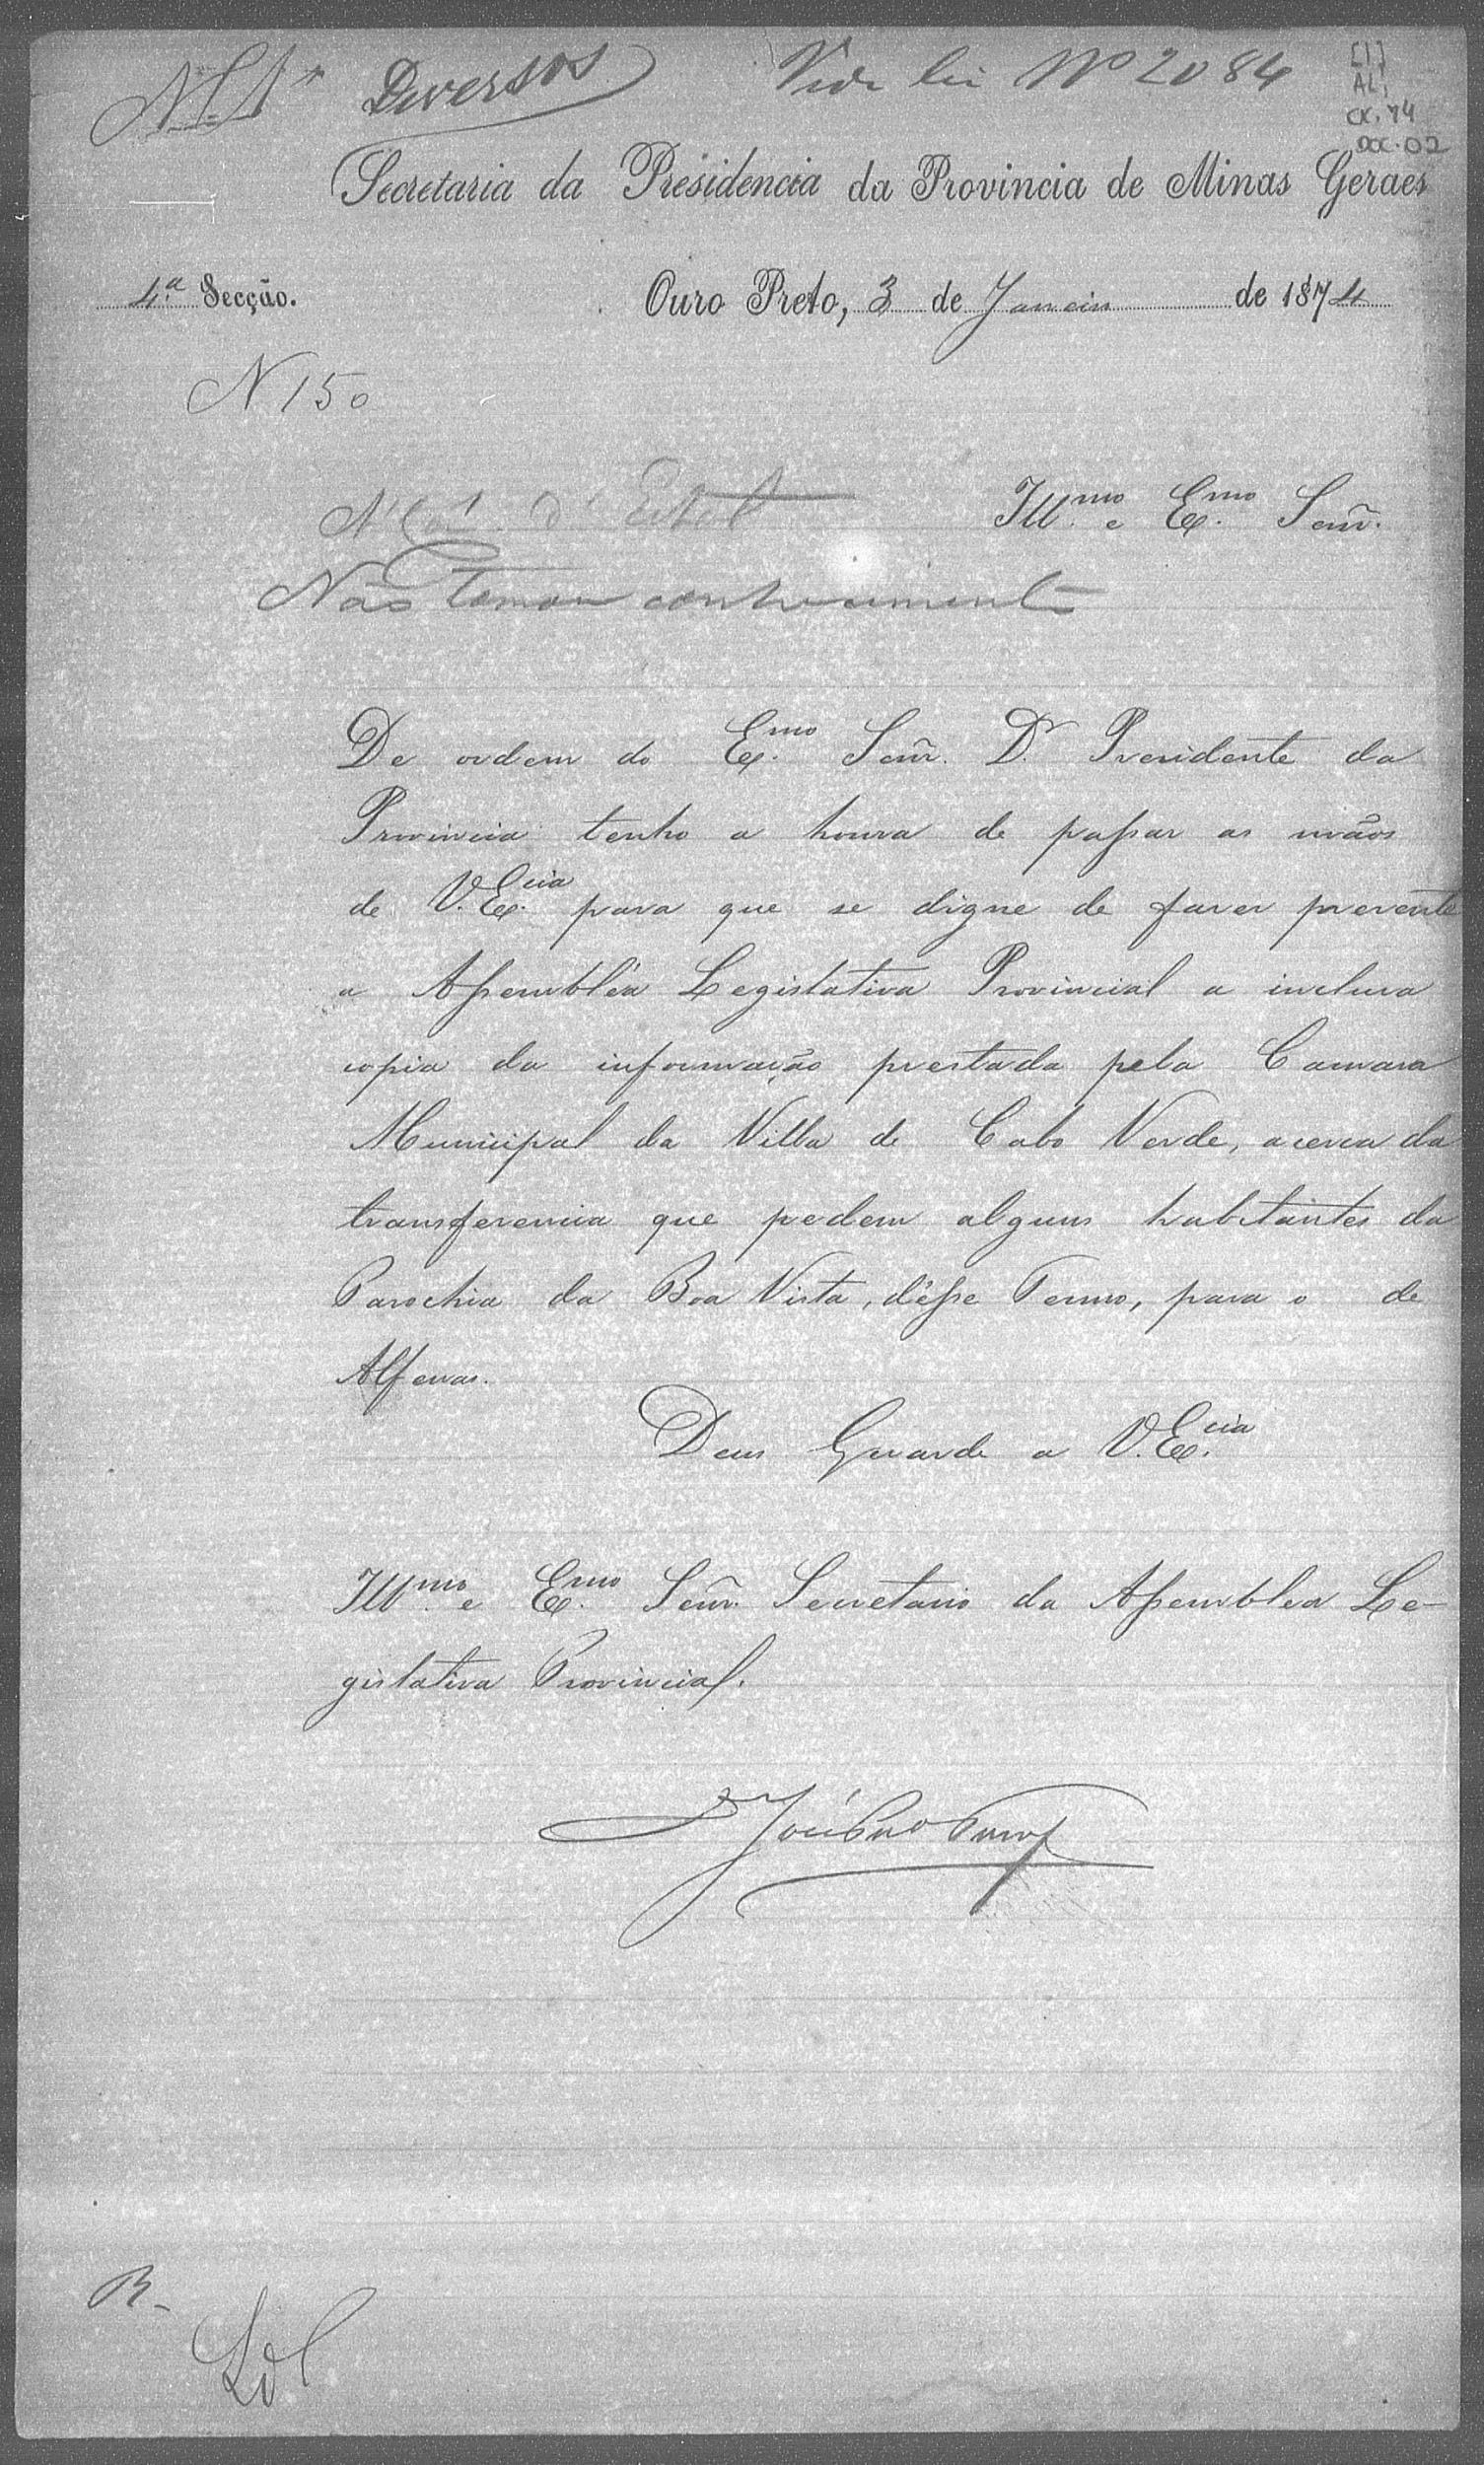 Diversos Vide lei Nº 2084
[1]
AL,
CX. 74
DOC. 02
Secretaria da Presidencia da Provincia de Minas Geraes
4.ª Secção. Ouro Preto, 3 de Janeiro de 1874
N 150
Ill.mo e Ex.mo Senr.
Não tomou conhecimento
De ordem do Ex.mo Senr. Dr. Presidente da
Provincia tenho a honra de passar as mãos
de V. Ex.cia para que se digne de fazer presente
a Assembléa Legislativa Provincial a inclusa
copia da informação prestada pela Camara
Municipal da Villa de Cabo Verde, acerca da
transferencia que pedem alguns habitantes da
Parochia da Boa Vista, d'esse Termo, para o de
Alfenas.
Deus Guarde a V. Ex.cia
Ill.mo e Ex.mo Senr. Secretario da Assemblea Le-
gislativa Provincial.